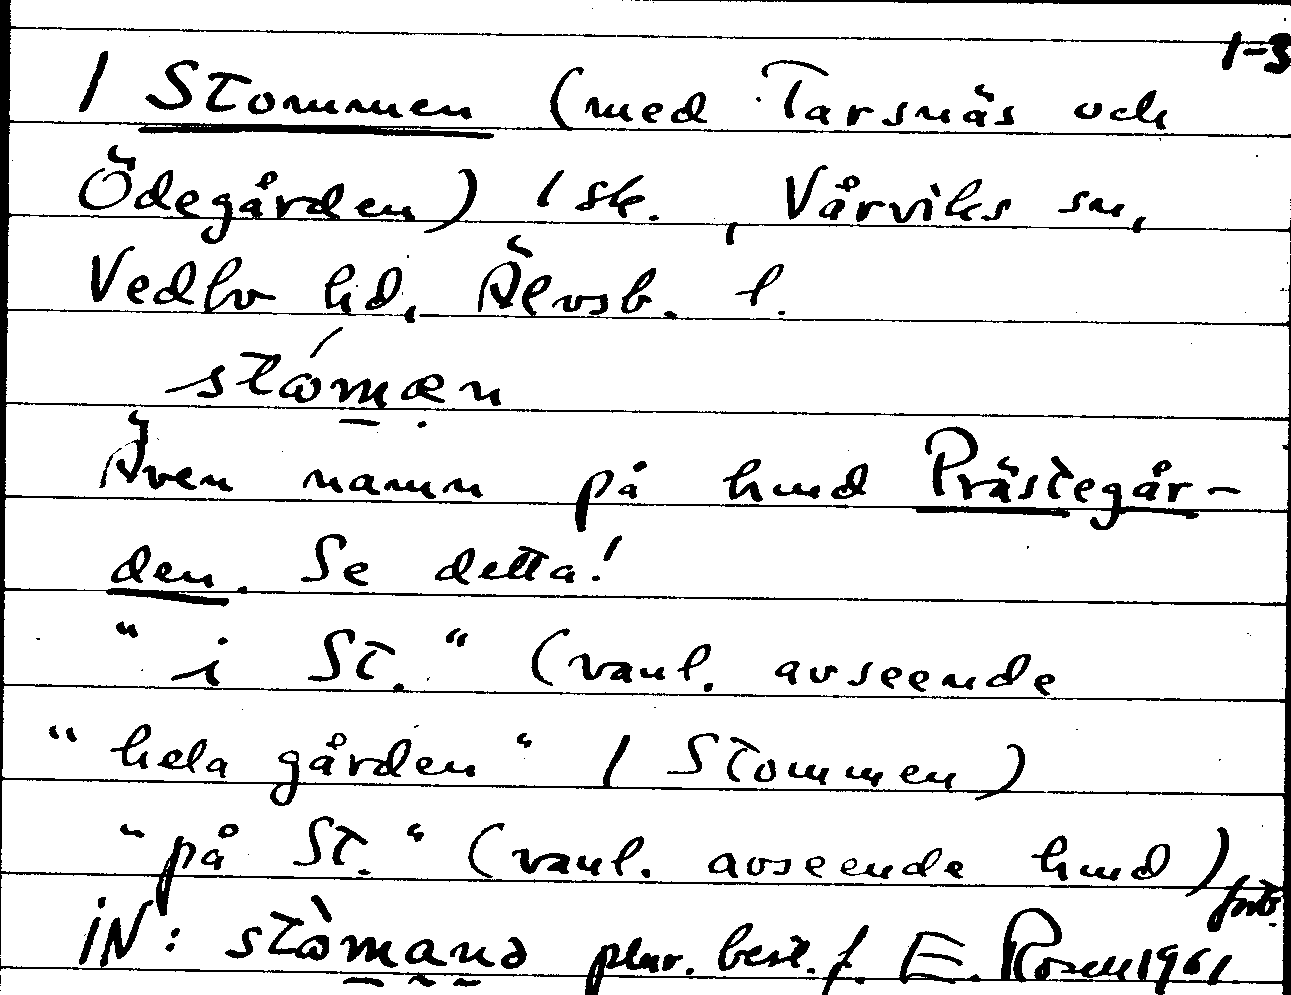 1-3
1 Stommen (med Tarsnäs och
Ödegården) 1 sk., Vårviks sn,
Vedbo hd, Älvsb. l.
stómæn
Även namn på hmd Prästegår-
den. Se detta!
" i St. " (vanl. avseende
" hela gården " 1 Stommen)
" på St. " (vanl. avseende hmd)
forts.
IN: stòmana plur. best. f. E. Rosell 1961